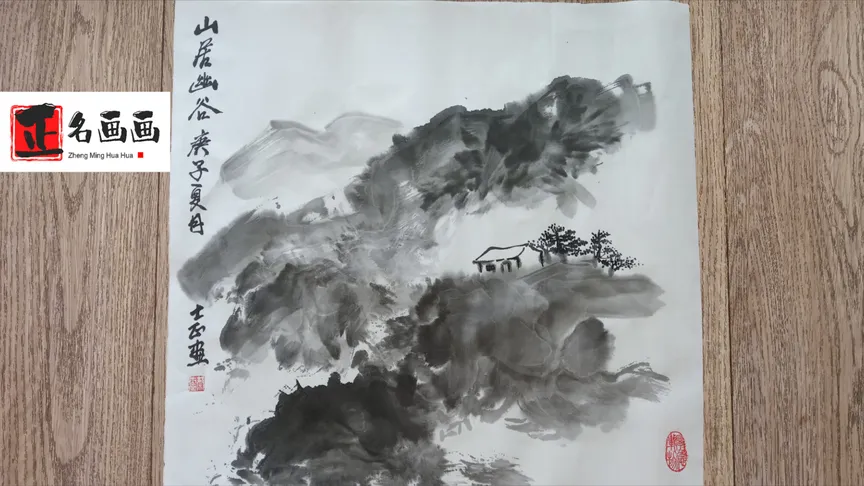 正名画画
Zheng Ming Hua Hua
山居幽谷 庚子夏月
士正画